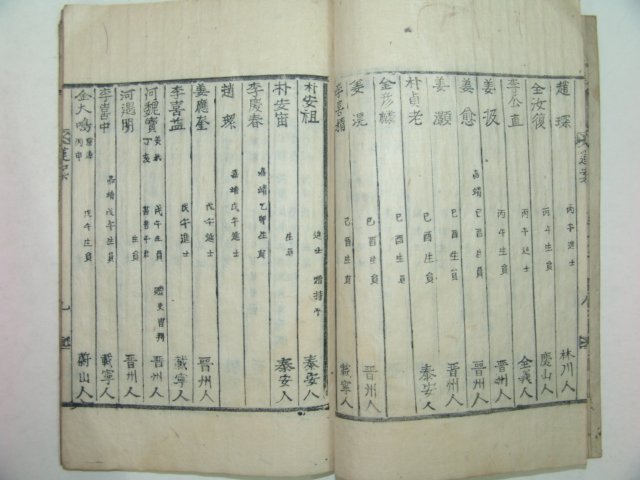 趙琛 丙午進士 林川人
金汝復 丙午生員 慶山人
李公直 丙午進士 金義人
姜汲 丙午生員 晋州人
姜愈 嘉靖己酉生員 晋州人
姜灝 己酉生員 晋州人
朴貞老 己酉生員 泰安人
金彦麟 己酉生員
姜滉 己酉進士 晋州人
己酉進士 載寧人
朴安祖 進士 贈持平 泰安人
朴安宙 生員 泰安人
李慶春 嘉靖乙卯生員
趙琛 嘉靖戊午生員
姜應奎 戊午進士 晋州人
李喜益 戊午進士 載寧人
河魏寶 戊午生員 晋州人
河遇圖 生員 晋州人
李曾中 嘉靖戊午生員 載寧人
金大鳴 戊午生員 蔚山人
蓮案
九